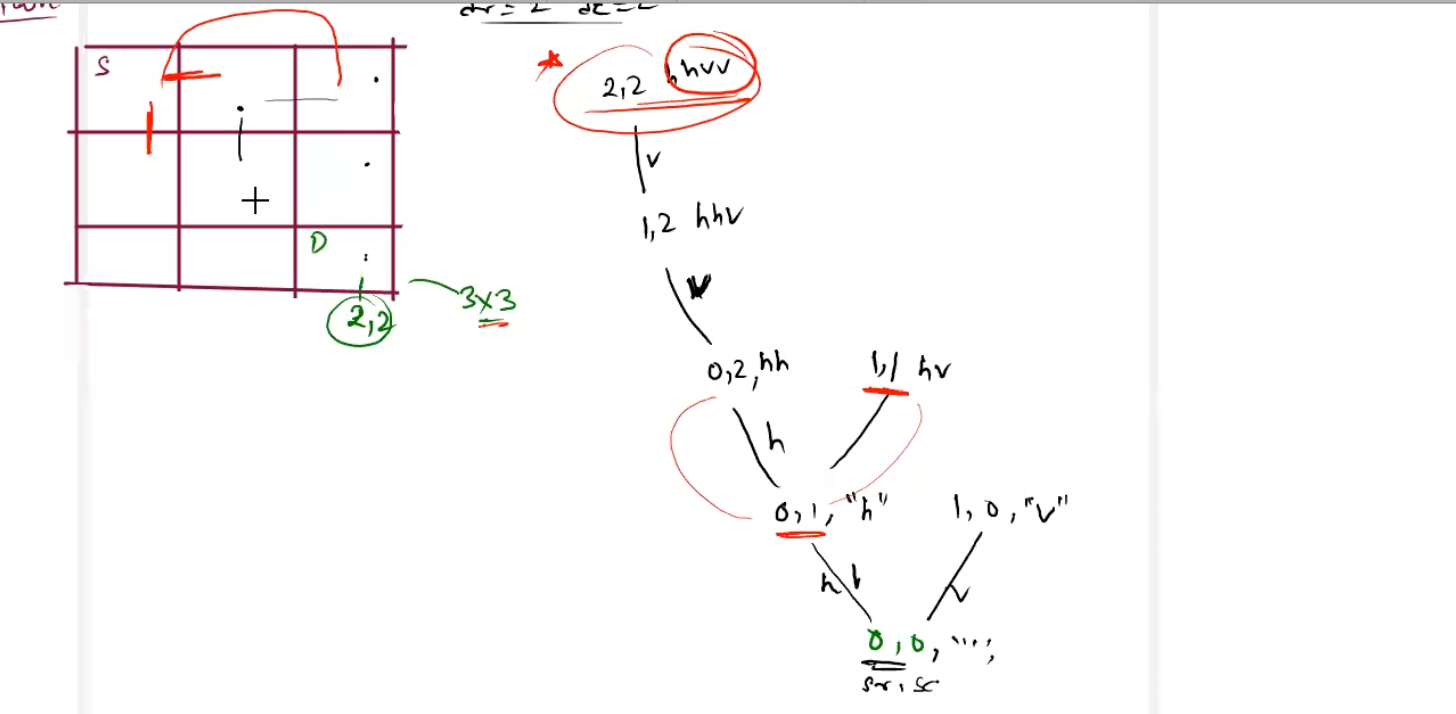 S
D
2,2
3x3
2,2 hhvv
v
1,2 hhv
v
0,2,hh
1,1 hv
h
0,1,"h"
1,0,"v"
h
v
0,0,"",
sr, sc